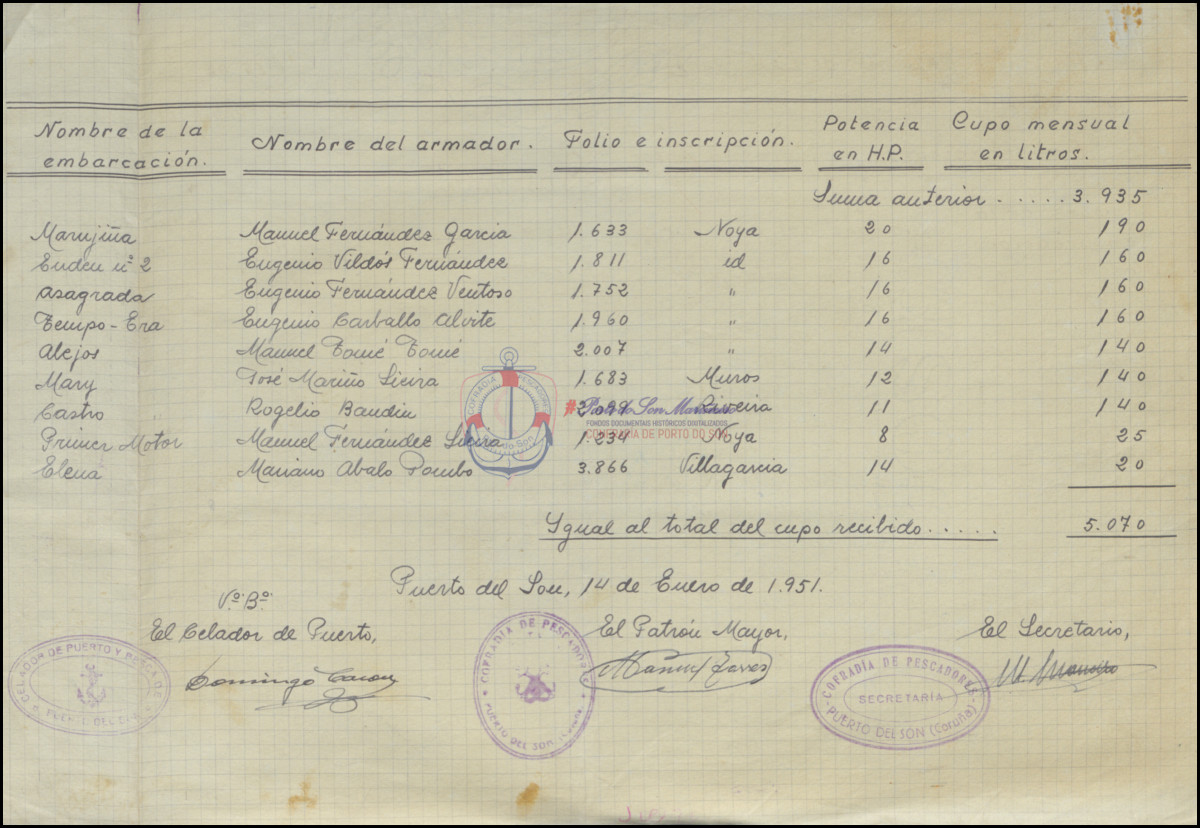 Nombre de la embarcación. Nombre del armador. Folio e inscripción. Potencia en H.P. Cupo mensual en litros.
Suma anterior . . . . . 3.935
Marujiña Manuel Fernández García 1.633 Noya 20 190
Enden nº 2 Eugenio Vildós Fernández 1.811 id 16 160
Asagrada Eugenio Fernández Ventoso 1.752 " 16 160
Tempo-Era Eugenio Carballo Alvite 1.960 " 16 160
Alejos Manuel Tomé Tomé 2.007 " 14 140
Mary José Mariño Sieira 1.683 Muros 12 140
Castro Rogelio Baudin Riveira 11 140
Primer Motor Manuel Fernández Sieira 1.234 Noya 8 25
Elena Mariano Abalo Pombo 3.866 Villagarcia 14 20
Igual al total del cupo recibido . . . . . 5.070
Puerto del Son, 14 de Enero de 1.951.
Vº Bº
El Celador de Puerto, El Patrón Mayor, El Secretario,
Domingo
Manuel
CELADOR DE PUERTO Y PESCA DE
PUERTO DEL SON
COFRADIA DE PESCADORES
PUERTO DEL SON
COFRADÍA DE PESCADORES
SECRETARIA
PUERTO DEL SÓN (Coruña)
COFRADÍA PESCADORES
Porto do Son
#Porto do Son
FONDOS DOCUMENTAIS HISTÓRICOS DIXITALIZADOS
COFRADÍA DE PORTO DO SON